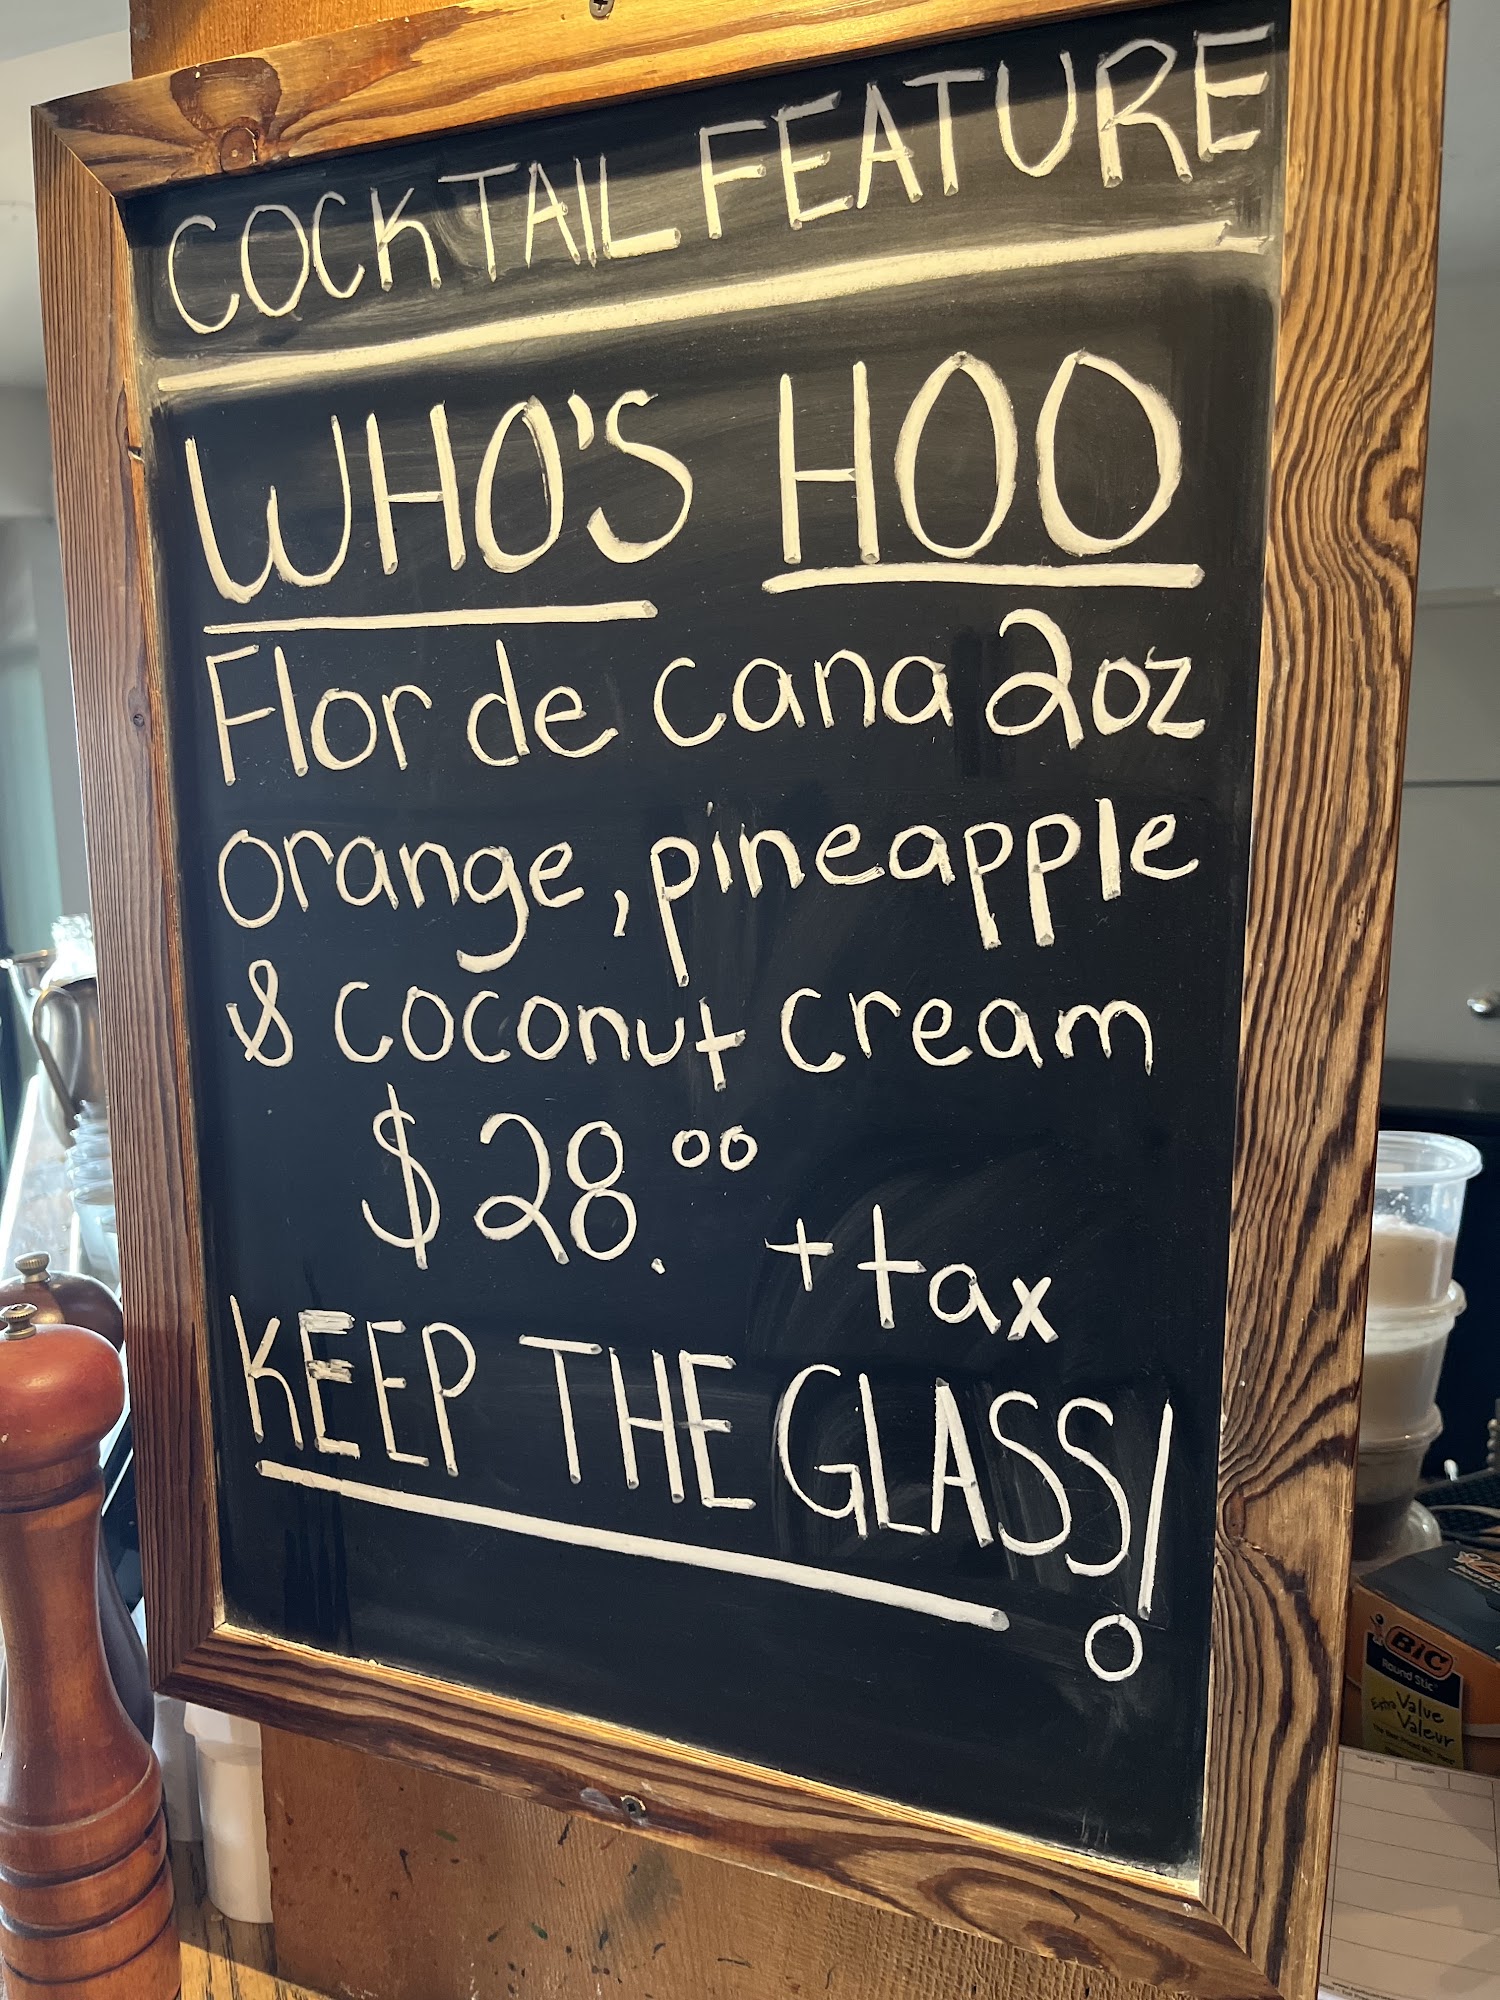 COCKTAIL FEATURE
WHO'S HOO
Flor de cana 2oz
orange, pineapple
& coconut cream
$28.00
+ tax
KEEP THE GLASS!
BIC
Round Stic
Extra Value
Valeur